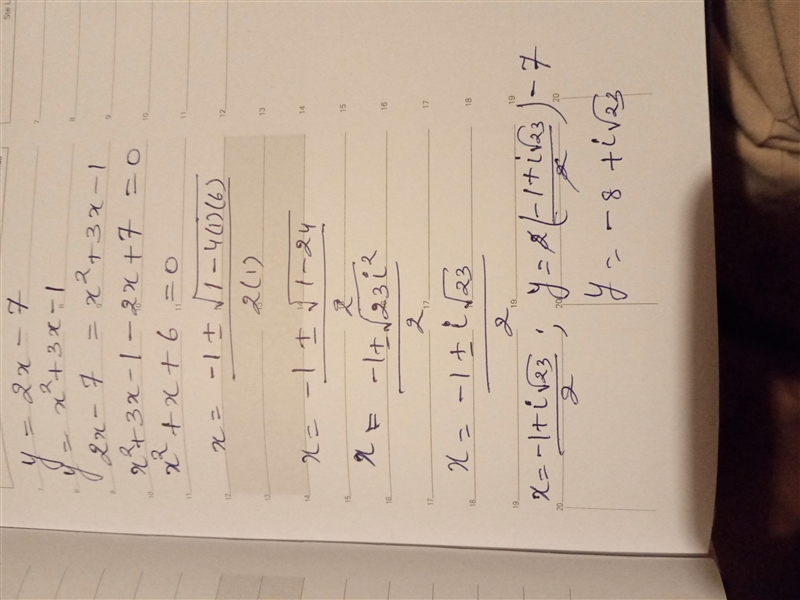 y = 2x - 7
y = x² + 3x - 1
2x - 7 = x² + 3x - 1
x² + 3x - 1 - 2x + 7 = 0
x² + x + 6 = 0
x = (-1 ± √(1 - 4(1)(6))) / 2(1)
x = (-1 ± √(1 - 24)) / 2
x = (-1 ± √(23i²)) / 2
x = (-1 ± i√23) / 2
x = (-1 + i√23) / 2 ; y = 2((-1 + i√23) / 2) - 7
y = -8 + i√23